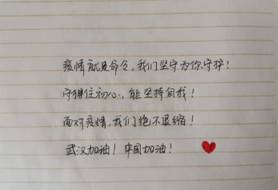 疫情就是命令，我们坚守为你守护！
守得住初心，能坚持自我！
面对疫情，我们绝不退缩！
武汉加油！中国加油！